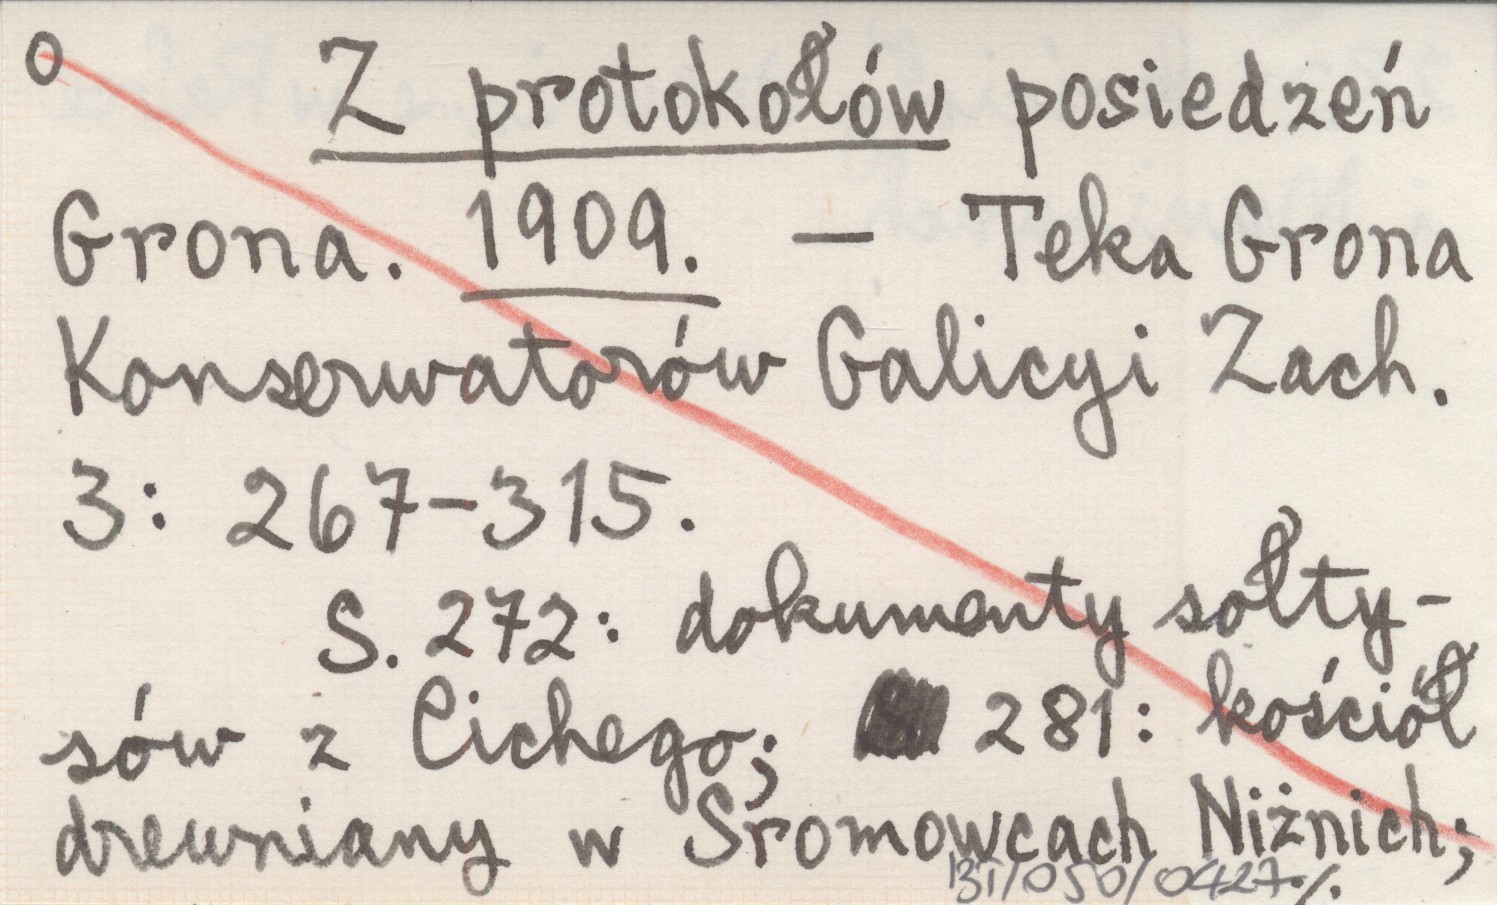 o Z protokołów posiedzeń
Grona. 1909. — Teka Grona
Konserwatorów Galicyi Zach.
3: 267-315.
S. 272: dokumenty sołty-
sów z Cichego; 281: kościół
drewniany w Sromowcach Niżnich;
BI/050/0427 ./.